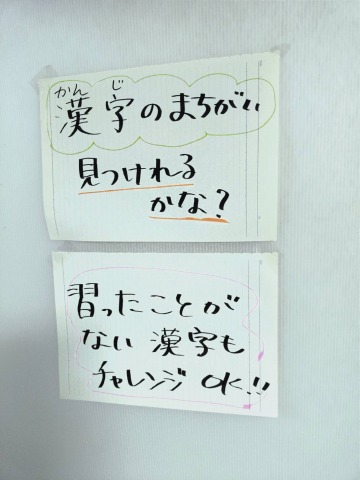 かん じ
漢字のまちがい
見つけれる
かな?
習ったことが
ない 漢字も
チャレンジ OK!!